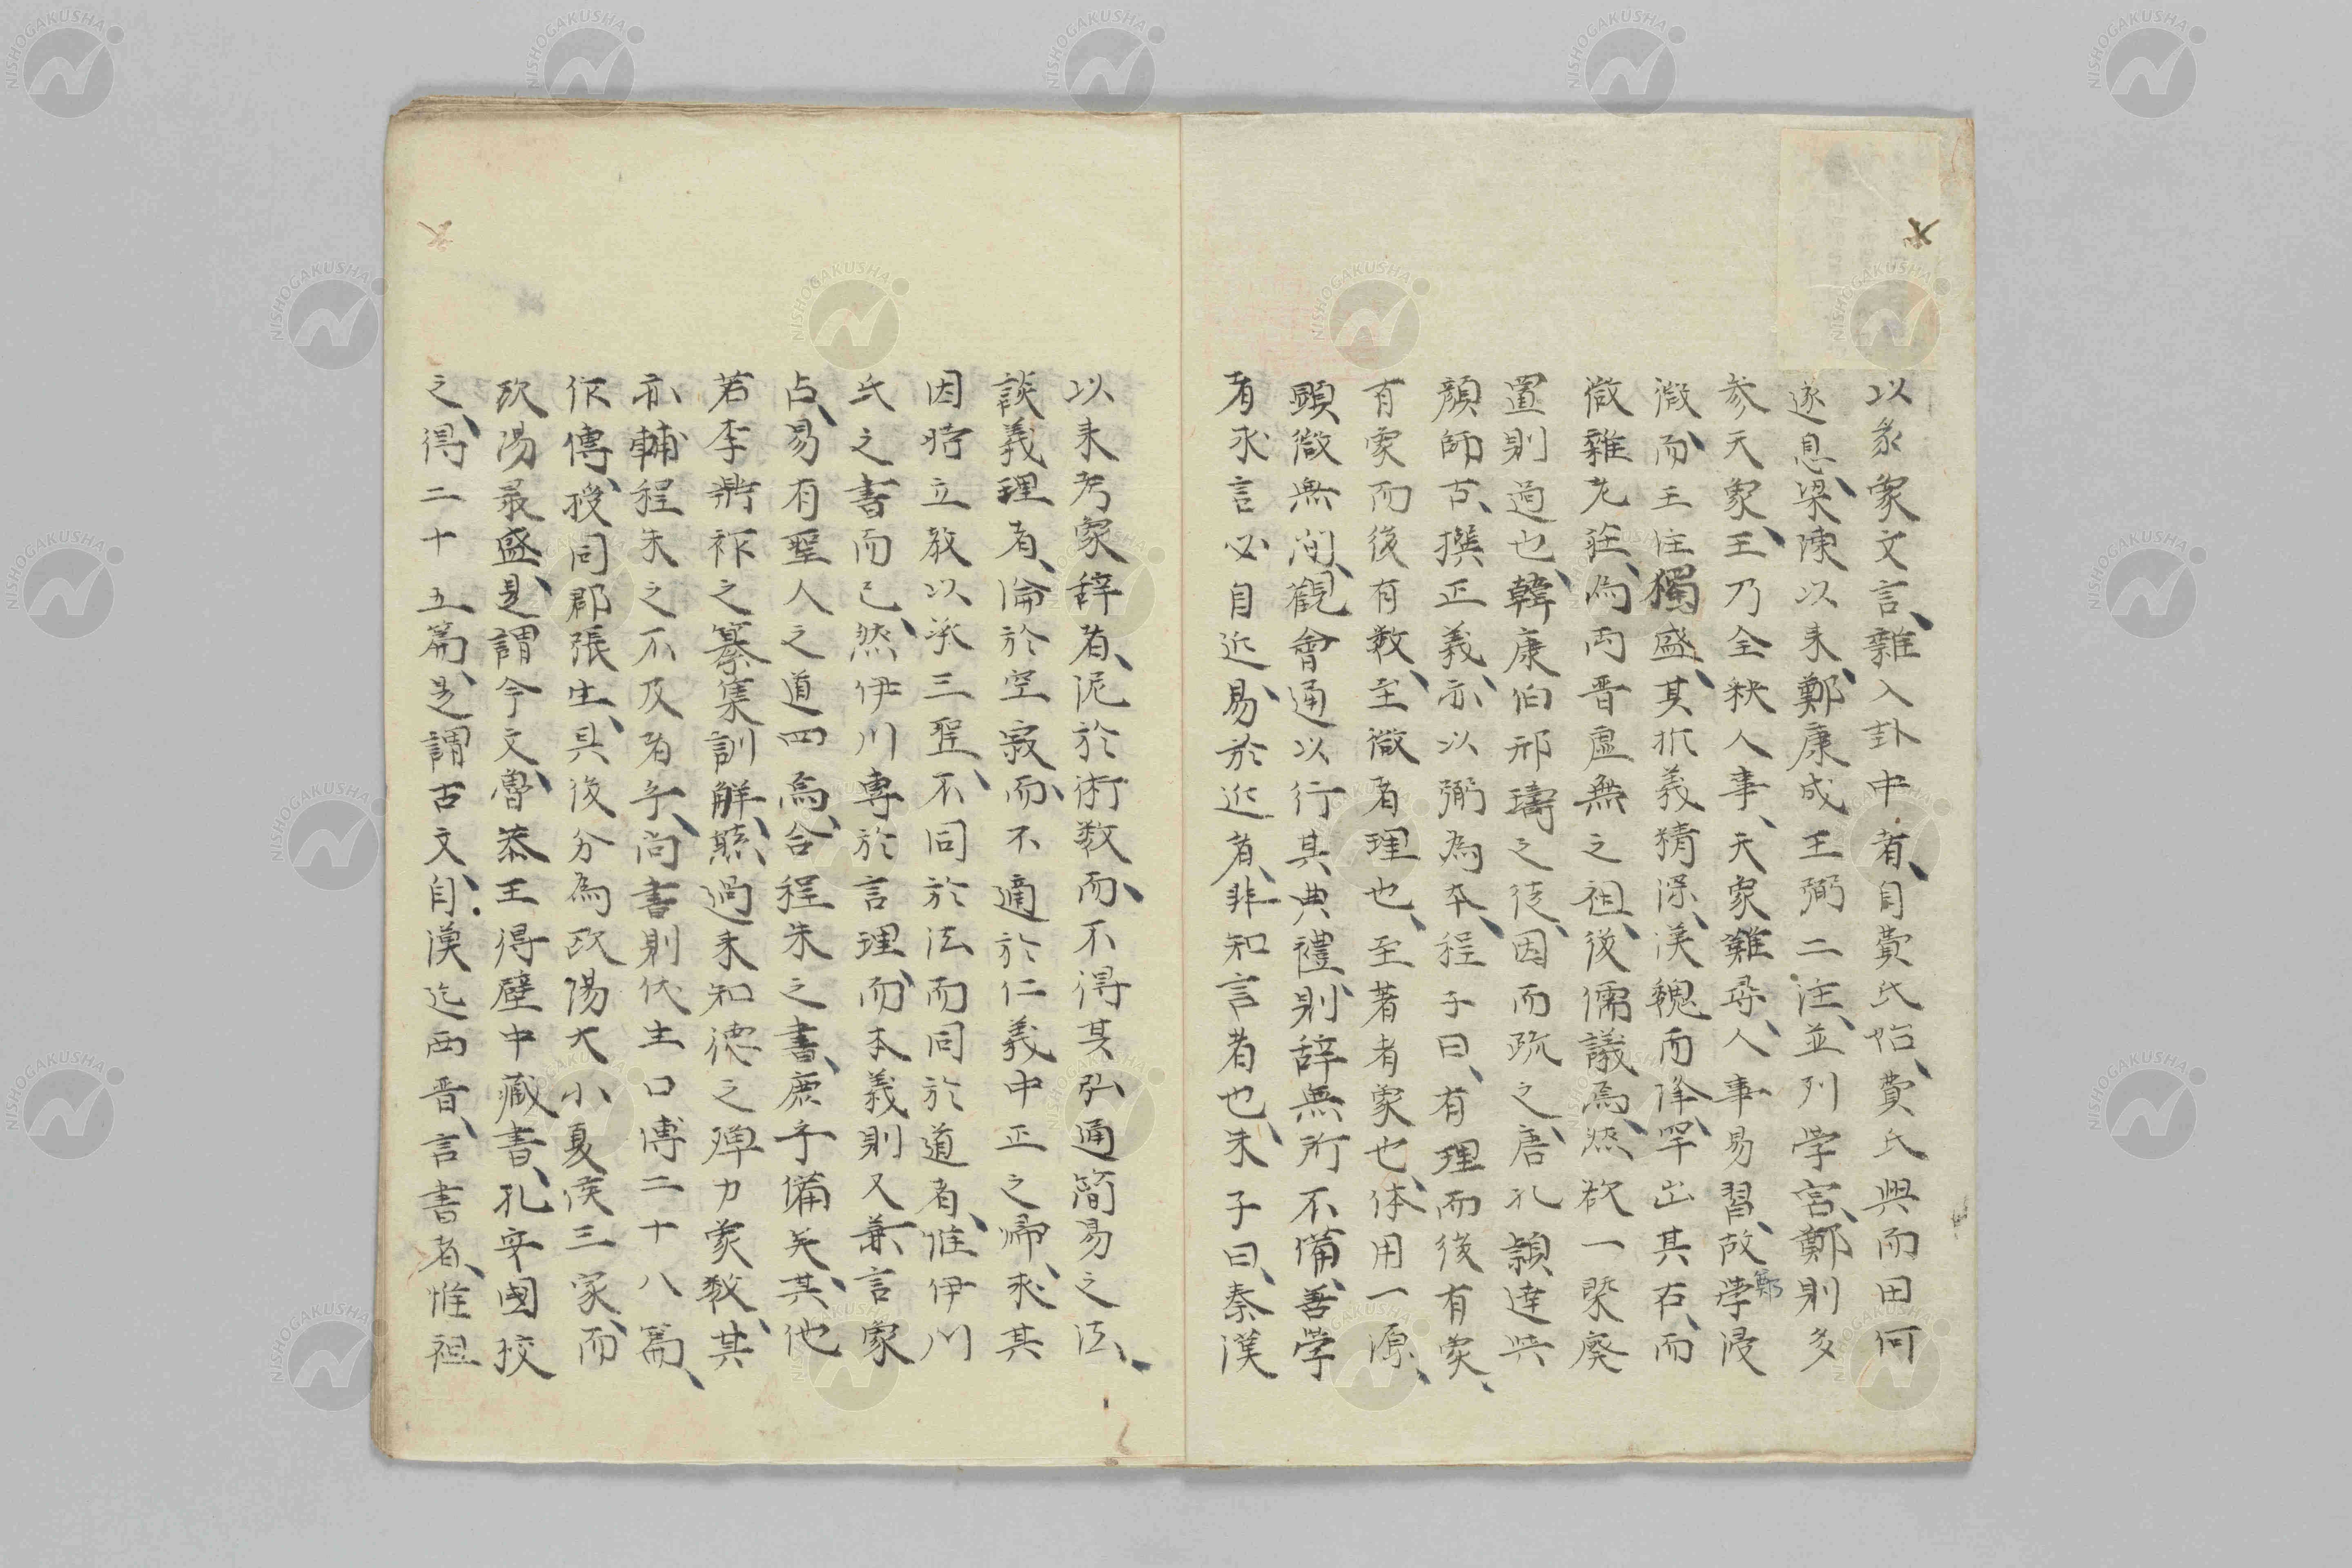 以彖象文言、雜入卦中者、自費氏始、費氏興而田何
遂息、梁陳以来、鄭康成王弼二注、並列学宮、鄭則多
参天象、王乃全秧人事、天象難尋、人事易習、故鄭学浸
微、而王注獨盛、其析義精深、漢魏而降、罕出其右、而
微雜老莊、為両晋虚無之祖、後儒議焉、然欲一槩廃
置則過也、韓康伯邢璹之徒、因而疏之、唐孔頴達與
顔師古、撰正義、亦以弼為本、程子曰、有理而後有象、
有象而後有数、至微者理也、至著者象也、体用一源、
顕微無間、觀會通以行其典禮、則辞無所不備、善学
者求言必自近、易於近者、非知言者也、朱子曰、秦漢
以来考象辞者、泥於術数、而不得其弘通簡易之法、
談義理者、淪於空寂、而不適於仁義中正之帰、求其
因時立教以承三聖、不同於法而同於道者、惟伊川
氏之書而已、然伊川専於言理、而本義則又兼言象
占、易有聖人之道四焉、合程朱之書、庶乎備矣、其他
若李鼎祚之纂集訓解、熊過来知德之殫力象数、其
亦輔程朱之不及者乎、尚書則伏生口傳二十八篇、
作傳、授同郡張生、具後分為欧陽大小夏侯三家、而
欧陽最盛、是謂今文、魯恭王得壁中藏書、孔安國挍
之、得二十五篇、是謂古文、自漢迄西晋、言書者、惟祖